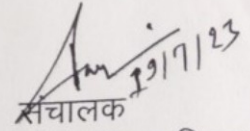 19/7/23
संचालक